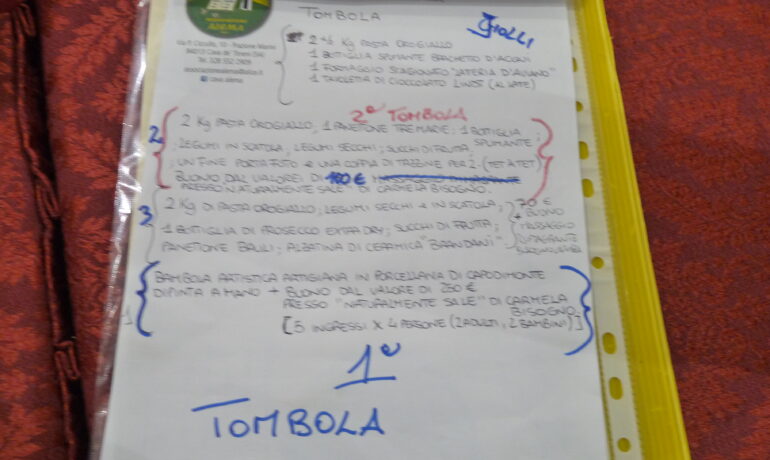 ANEMA
TOMBOLA
Jolli
2 ½ Kg PASTA OROGIALLO
1 BOTTIGLIA SPUMANTE BRACHETTO D'ACQUI
1 FORMAGGIO STAGIONATO "LATERIA D'AVIANO"
1 TAVOLETTA DI CIOCCOLATO LINDT (AL LATTE)
2ª TOMBOLA
2 2 Kg PASTA OROGIALLO, 1 PANETONE TRE MARIE; 1 BOTTIGLIA
SPUMANTE;
; LEGUMI IN SCATOLA, LEGUMI SECCHI; SUCCHI DI FRUTTA,
UN FINE PORTA FOTO e UNA COPPIA DI TAZZINE PER 2. (TET A TET)
BUONO DAL VALORE DI 100 €
PRESSO NATURALMENTE SALE" DI CARMELA BISOGNO.
3 2 Kg DI PASTA OROGIALLO; LEGUMI SECCHI e IN SCATOLA;
1 BOTTIGLIA DI PROSECCO EXTRA DRY; SUCCHI DI FRUTTA;
PANETONE BAULI; ALBATINA DI CERAMICA "BRANDANI"
70 €
+ BUONO
MASSAGGIO
1 BAMBOLA ARTISTICA ARTIGIANA IN PORCELLANA DI CAPODIMONTE
DIPINTA A MANO + BUONO DAL VALORE DI 250 €
PRESSO "NATURALMENTE SALE" DI CARMELA
BISOGNO
[5 INGRESSI X 4 PERSONE (2 ADULTI, 2 BAMBINI)]
1ª
TOMBOLA